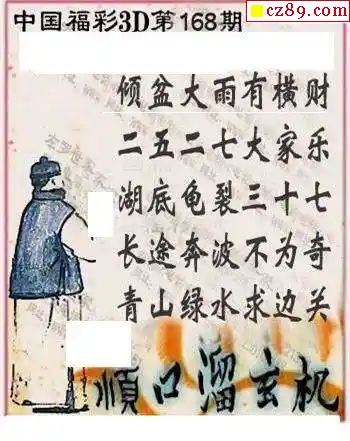 cz89.com
中国福彩3D第168期
倾盆大雨有横财
二五二七大家乐
湖底龟裂三十七
长途奔波不为奇
青山绿水求边关
順口溜玄机